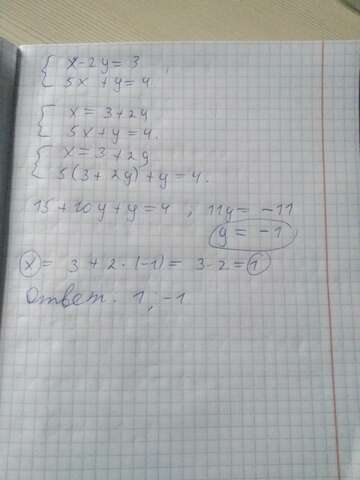 x-2y=3
5x+y=4
x=3+2y
5x+y=4.
x=3+2y
5(3+2y)+y=4.
15+10y+y=4, 11y=-11
y=-1
x= 3+2·(-1)= 3-2=1
Ответ. 1; -1